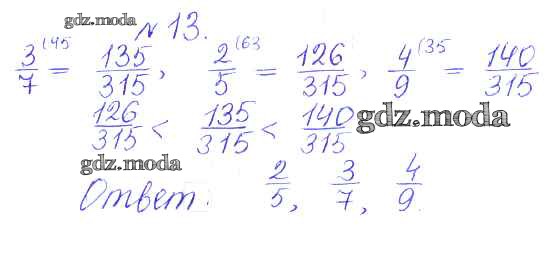 gdz.moda
№ 13.
3/7 (45 = 135/315, 2/5 (63 = 126/315, 4/9 (35 = 140/315
126/315 < 135/315 < 140/315 gdz.moda
gdz.moda
Ответ: 2/5, 3/7, 4/9.